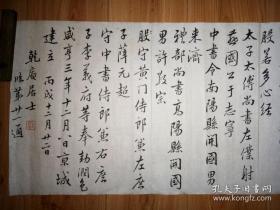 般若多心經
太子太傅尚書左僕射
燕國公于志寧
中書令南陽縣開國男
來濟
禮部尚書高陽縣開國
男許敬宗
守黄門侍郎兼左庶
子薛元超
守中書侍郎兼右庶
子李義府等奉勅潤色
咸亨三年十二月八日京城
建立 丙戌十二月廿二日
居士
臨第廿一通